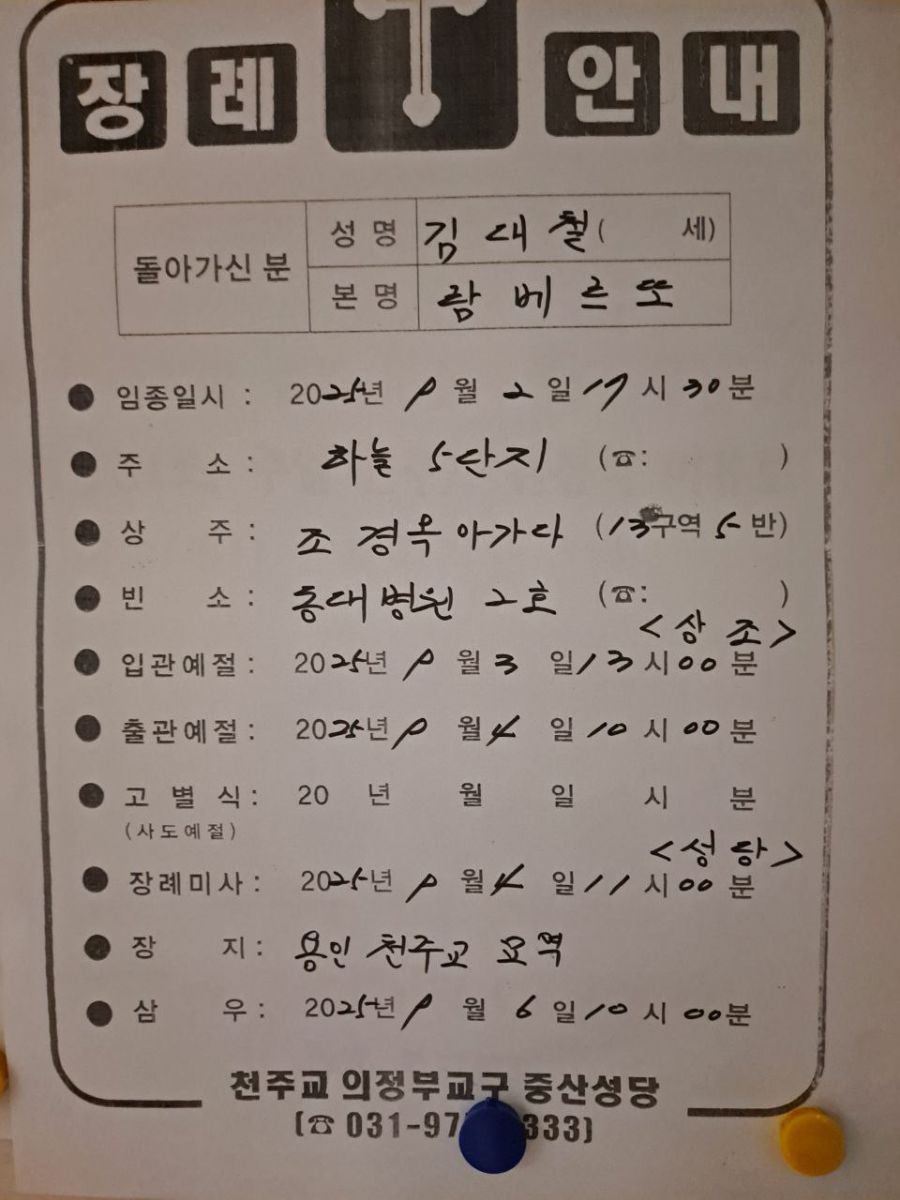 장례 안내
돌아가신 분
성명 김대철( 세)
본명 람베르또
● 임종일시 : 2025년 9월 2일 17시 30분
● 주 소 : 하늘 5단지 (☎: )
● 상 주 : 조경옥 아가다 (13구역 5반)
● 빈 소 : 동대병원 2호 (☎: )
<상조>
● 입관예절 : 2025년 9월 3일 13시 00분
● 출관예절 : 2025년 9월 4일 10시 00분
● 고 별 식 : 20 년 월 일 시 분
(사도예절)
<성당>
● 장례미사 : 2025년 9월 4일 11시 00분
● 장 지 : 용인 천주교 묘역
● 삼 우 : 2025년 9월 6일 10시 00분
천주교 의정부교구 중산성당
(☎ 031-97 333)